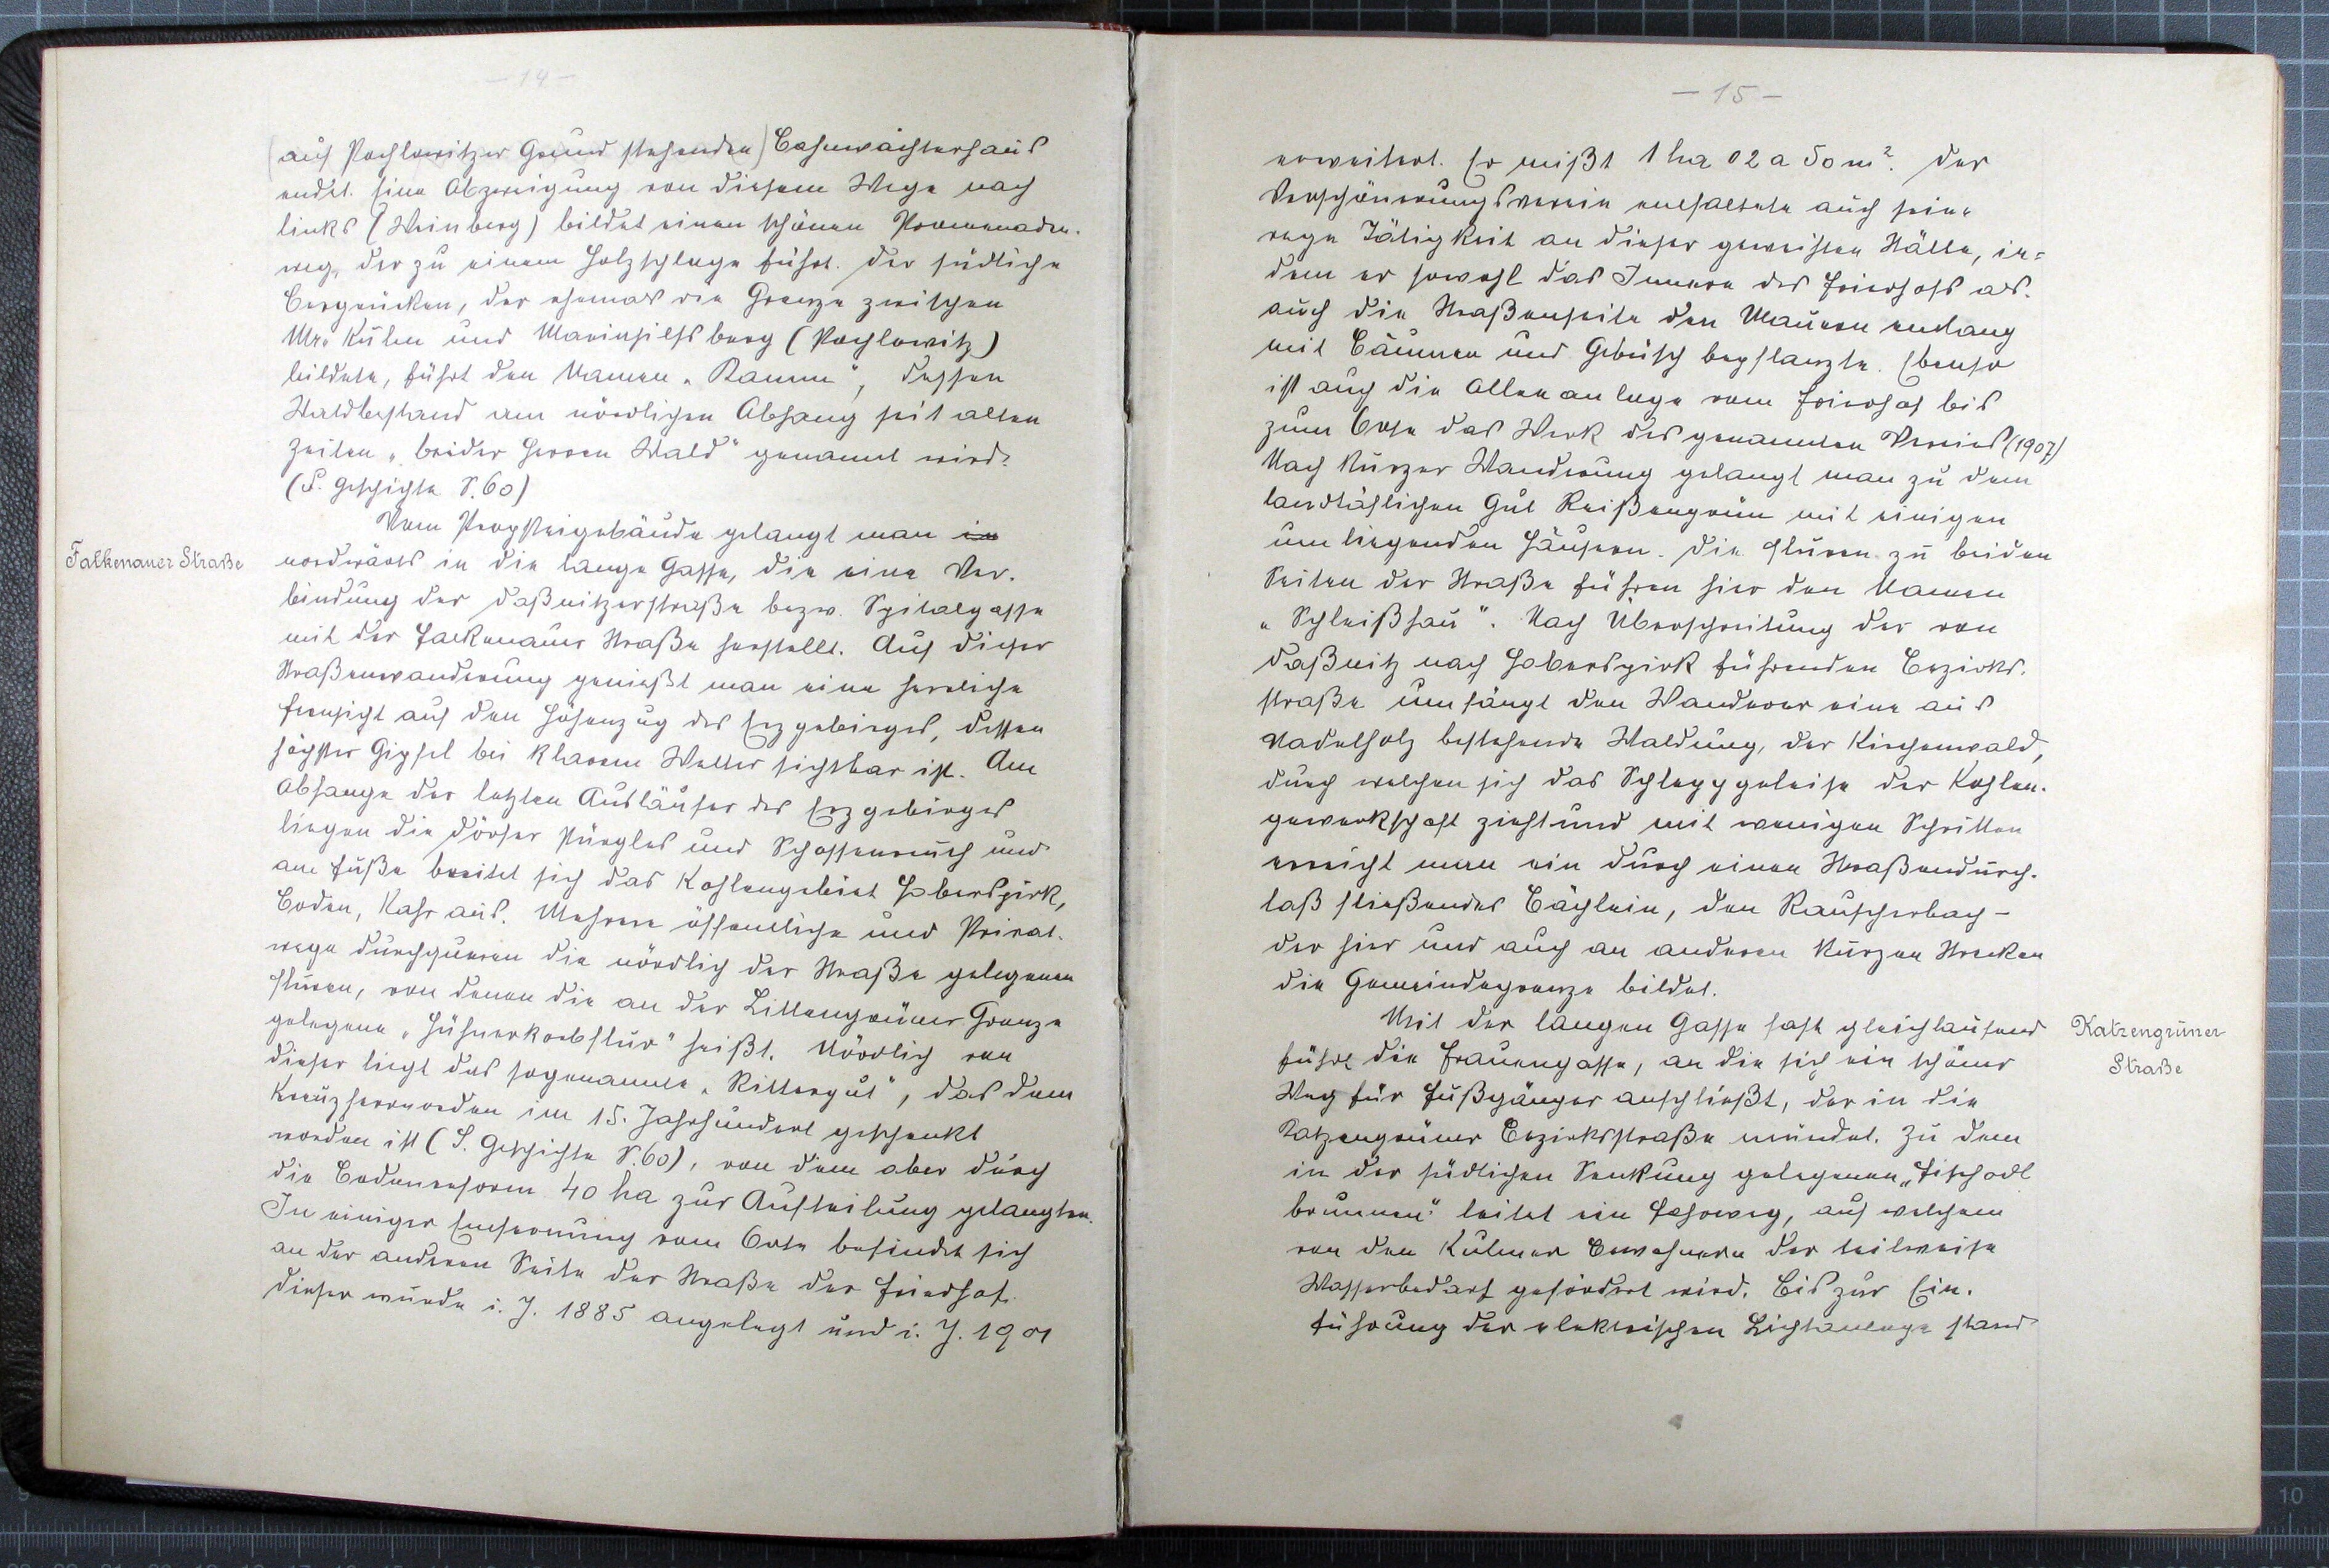 – 14 –
(auf Pochlowitzer Grund stehenden) Bahnwächterhaus
endet. Eine Abzweigung von diesem Wege nach
links (Weinberg) bildet einen schönen Promenaden-
weg, der zu einem Holzschlage führt. Der südliche
Bergrücken, der ehemals die Grenze zwischen
Mr. Kulm und Mariahilfsberg (Pochlowitz)
bildete, führt den Namen „Ramm“, dessen
Waldbestand am nördlichen Abhang seit alten
Zeiten „beider Herren Wald“ genannt wird.
(S. Geschichte S. 60)
Vom Propsteigebäude gelangt man in
Falkenauer Straße
nordwärts in die lange Gasse, die eine Ver-
bindung der Daßnitzerstraße bezw. Spitalgasse
mit der Falkenauer Straße herstellt. Auf dieser
Straßenwanderung genießt man eine herrliche
Fernsicht auf den Höhenzug des Erzgebirges, dessen
höchster Gipfel bei klarem Wetter sichtbar ist. Am
Abhange der letzten Ausläufer des Erzgebirges
liegen die Dörfer Pürgles und Schossenreuth und
am Fuße breitet sich das Kohlengebiet Haberspirk,
Boden, Kahr aus. Mehrere öffentliche und Privat-
wege durchqueren die nördlich der Straße gelegenen
Fluren, von denen die an der Littengrüner Grenze
gelegene „Hühnerkorbflur“ heißt. Nördlich von
dieser liegt das sogenannte „Rittergut“, das dem
Kreuzherrnorden im 15. Jahrhundert geschenkt
worden ist (S. Geschichte S. 60), von dem aber durch
die Bodenreform 40 ha zur Aufteilung gelangten.
In einiger Entfernung vom Orte befindet sich
an der anderen Seite der Straße der Friedhof.
Dieser wurde i. J. 1885 angelegt und i. J. 1901
– 15 –
erweitert. Er mißt 1 ha 02 a 50 m². Der
Verschönerungsverein entfaltete auch seine
rege Tätigkeit an dieser geweihten Stätte, in-
dem er sowohl das Innere des Friedhofs als
auch die Straßenseite den Mauern entlang
mit Bäumen und Gebüsch bepflanzte. Ebenso
ist auch die Alleeanlage vom Friedhof bis
zum Orte das Werk des genannten Vereins (1907)
Nach kurzer Wanderung gelangt man zu dem
landtäflichen Gut Reißengrün mit einigen
umliegenden Häusern. Die Fluren zu beiden
Seiten der Straße führen hier den Namen
„Schleißhau“. Nach Überschreitung der von
Daßnitz nach Haberspirk führenden Bezirks-
straße umfängt den Wanderer eine aus
Nadelholz bestehende Waldung, der Kirchenwald,
durch welchen sich das Schleppgeleise der Kohlen-
gewerkschaft zieht und mit wenigen Schritten
erreicht man ein durch einen Straßendurch-
laß fließendes Bächlein, den Rauscherbach –
der hier und auch an anderen kurzen Strecken
die Gemeindegrenze bildet.
Mit der langen Gasse fast gleichlaufend
Katzengrüner
Straße
führt die Frauengasse, an die sich ein schöner
Weg für Fußgänger anschließt, der in die
Katzengrüner Bezirksstraße mündet. Zu dem
in der südlichen Senkung gelegenen „Fischödl
brunnen“ leitet ein Fahrweg, auf welchem
von den Kulmer Bewohnern der teilweise
Wasserbedarf gefördert wird. Bis zur Ein-
führung der elektrischen Lichtanlage stand